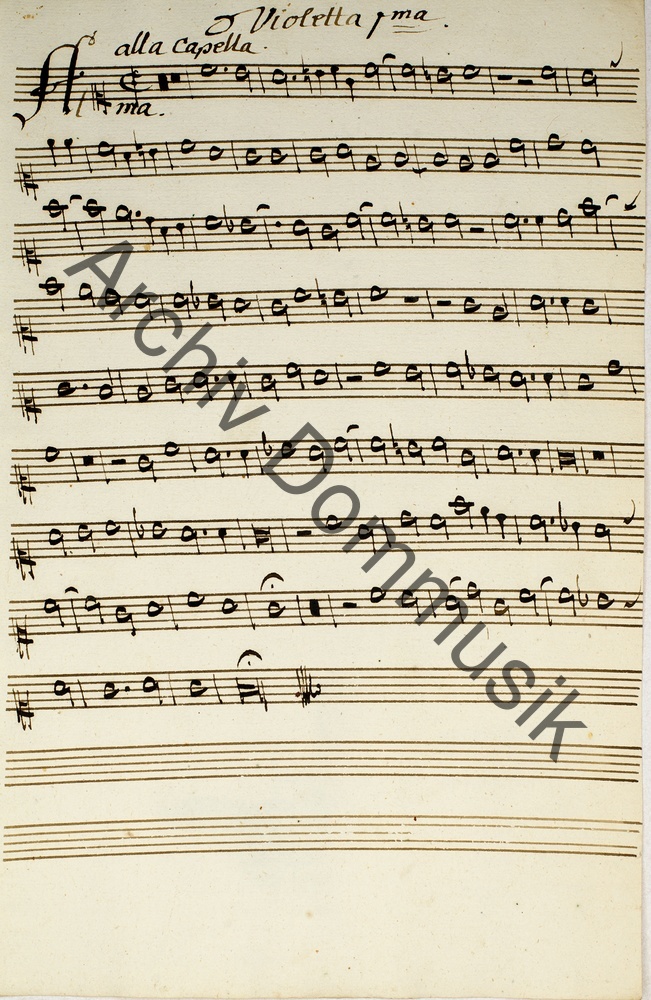 Violetta pma.
alla Capella.
Alma.
Archiv Dommusik